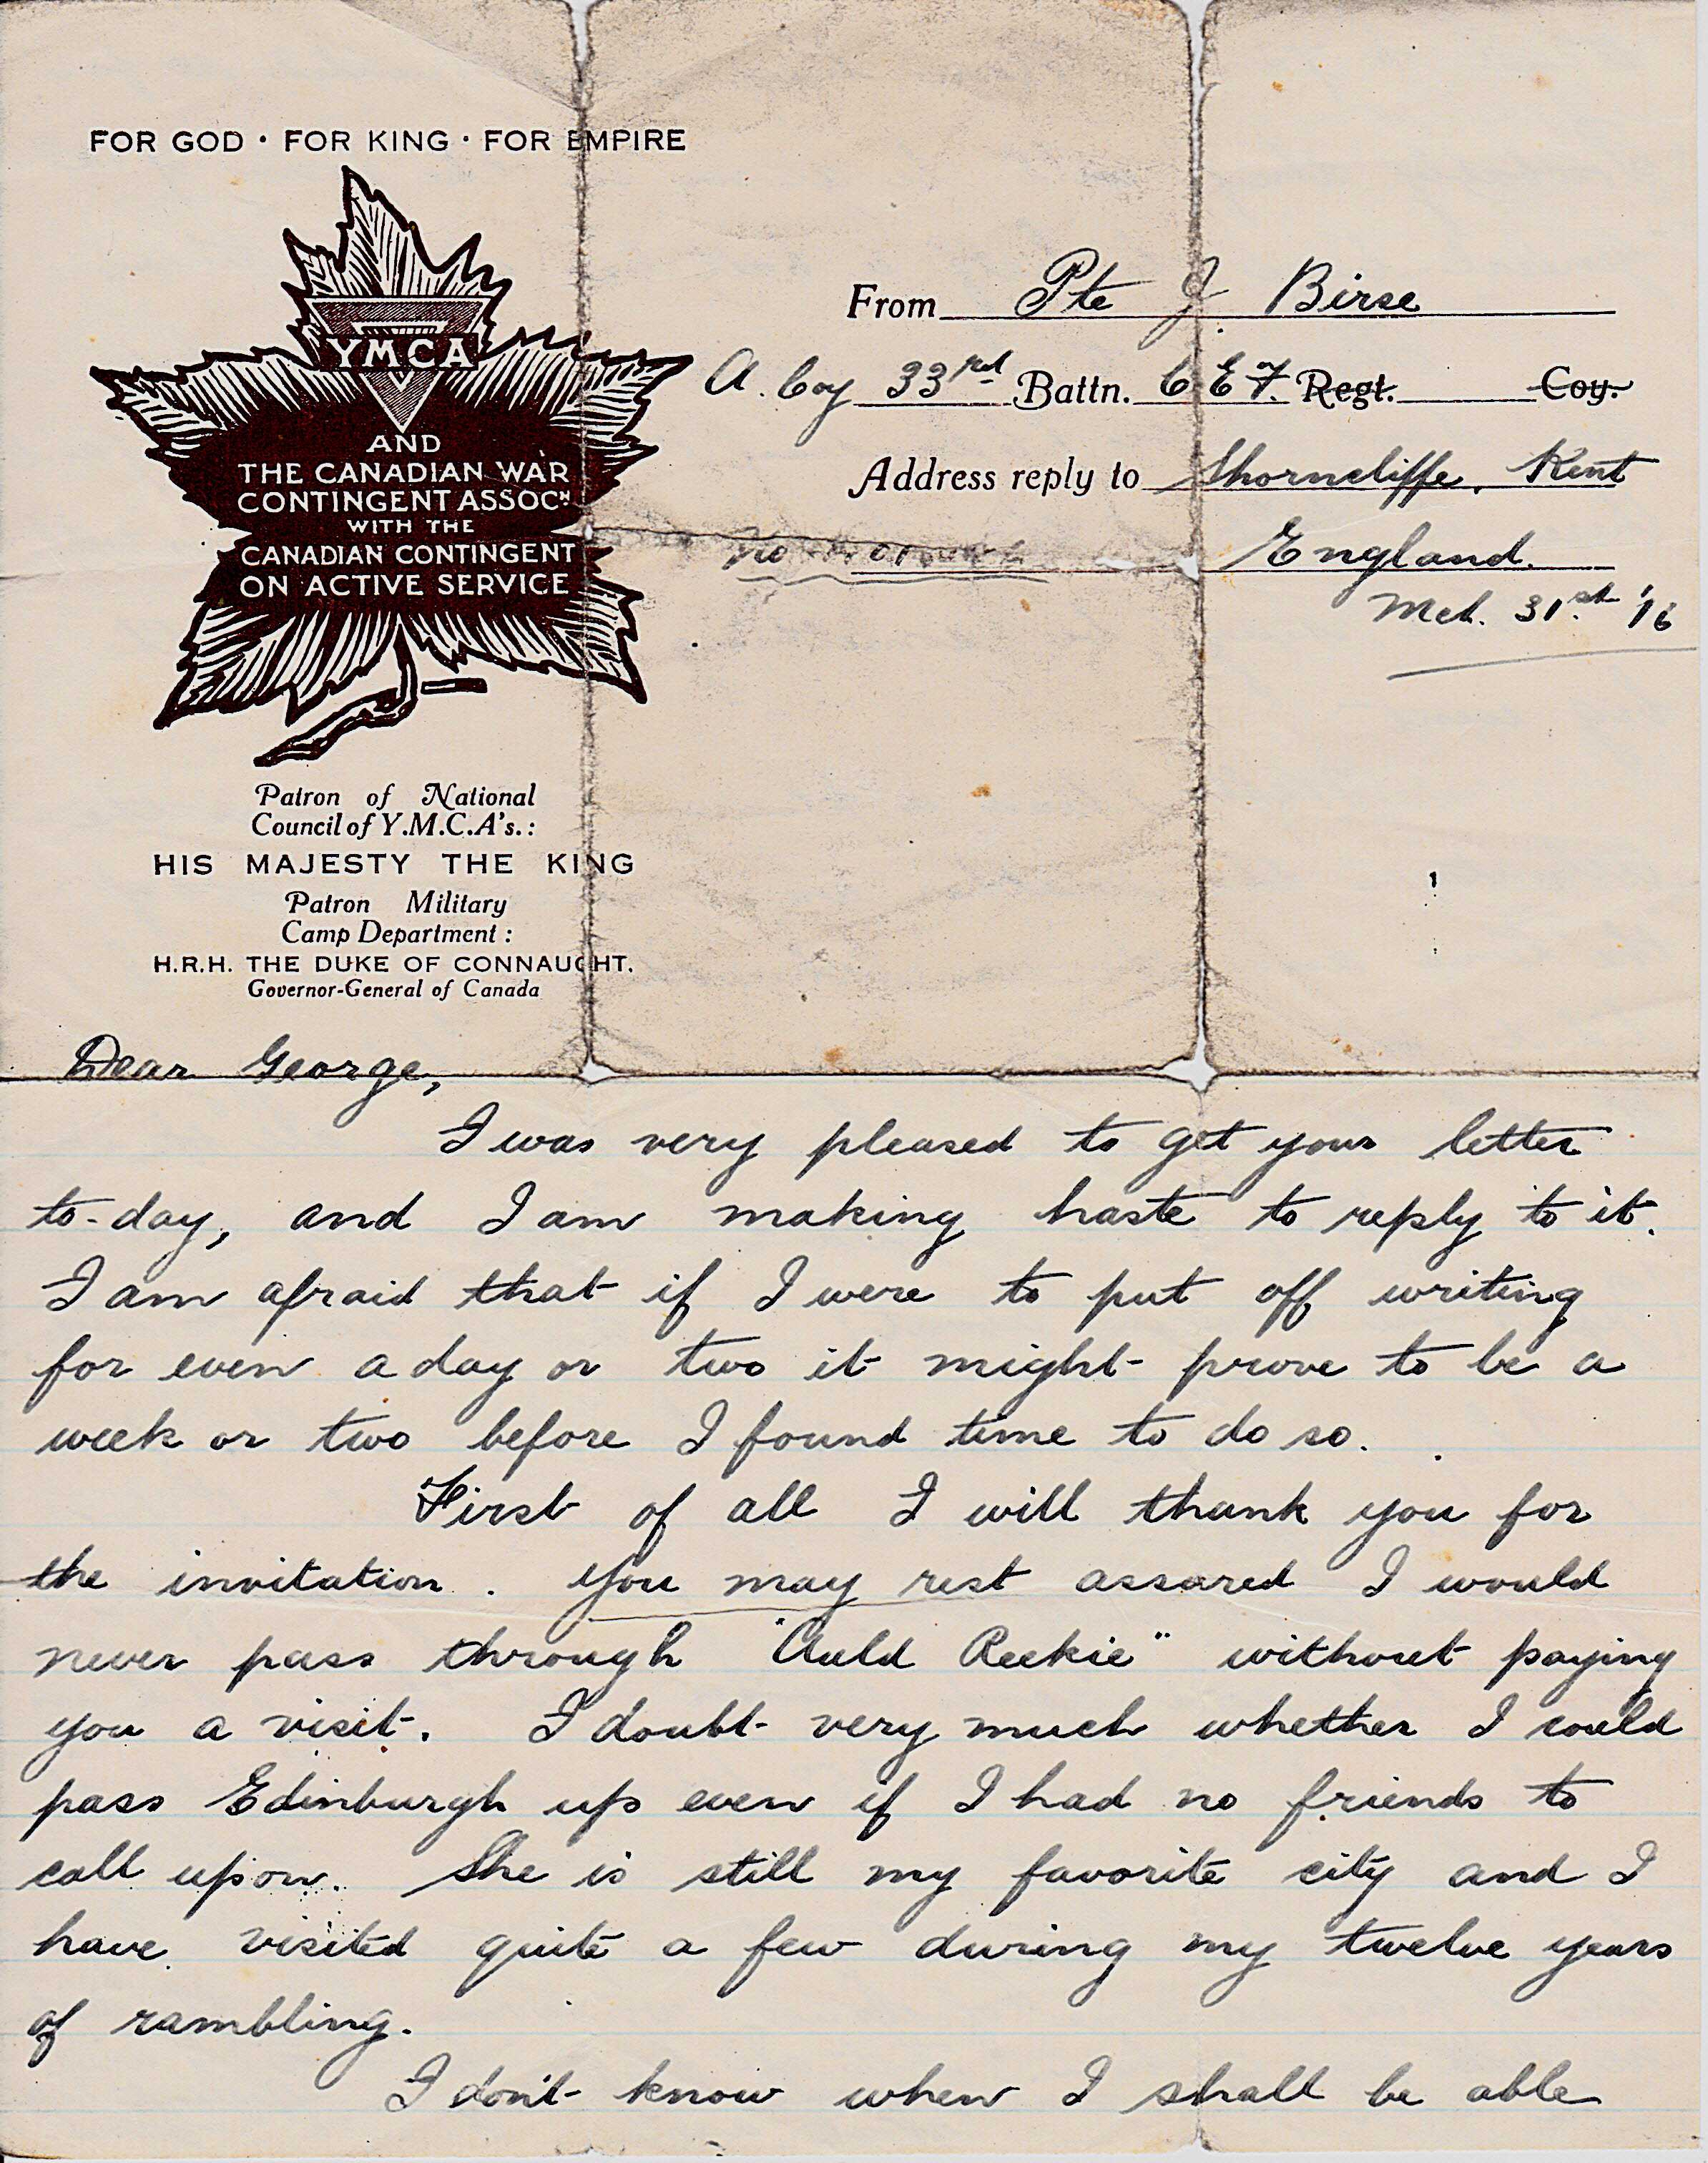 FOR GOD · FOR KING · FOR EMPIRE
YMCA
AND
THE CANADIAN WAR
CONTINGENT ASSOCN
WITH THE
CANADIAN CONTINGENT
ON ACTIVE SERVICE
Patron of National
Council of Y.M.C.A's.:
HIS MAJESTY THE KING
Patron Military
Camp Department:
H.R.H. THE DUKE OF CONNAUGHT.
Governor-General of Canada
From Pte J Birse
A. Coy 33rd Battn. C E F. Regt. Coy.
Address reply to Shorncliffe, Kent
England.
Mch. 31st '16
Dear George,
I was very pleased to get your letter
to-day, and I am making haste to reply to it.
I am afraid that if I were to put off writing
for even a day or two it might prove to be a
week or two before I found time to do so.
First of all I will thank you for
the invitation. You may rest assured I would
never pass through "Auld Reekie" without paying
you a visit. I doubt very much whether I could
pass Edinburgh up even if I had no friends to
call upon. She is still my favorite city and I
have visited quite a few during my twelve years
of rambling.
I don't know when I shall be able